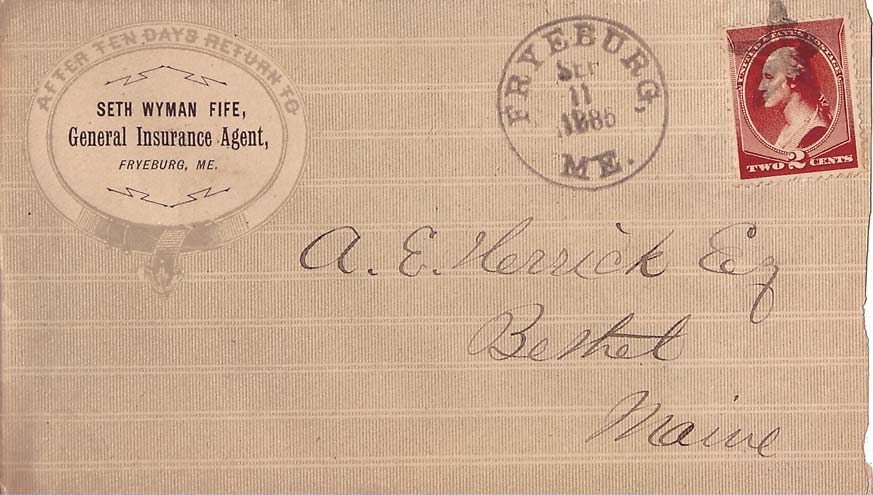 AFTER TEN DAYS RETURN TO
SETH WYMAN FIFE,
General Insurance Agent,
FRYEBURG, ME.
FRYEBURG,
SEP
11
1886
ME.
UNITED STATES POSTAGE
TWO 2 CENTS
A. E. Herrick Esq
Bethel
Maine